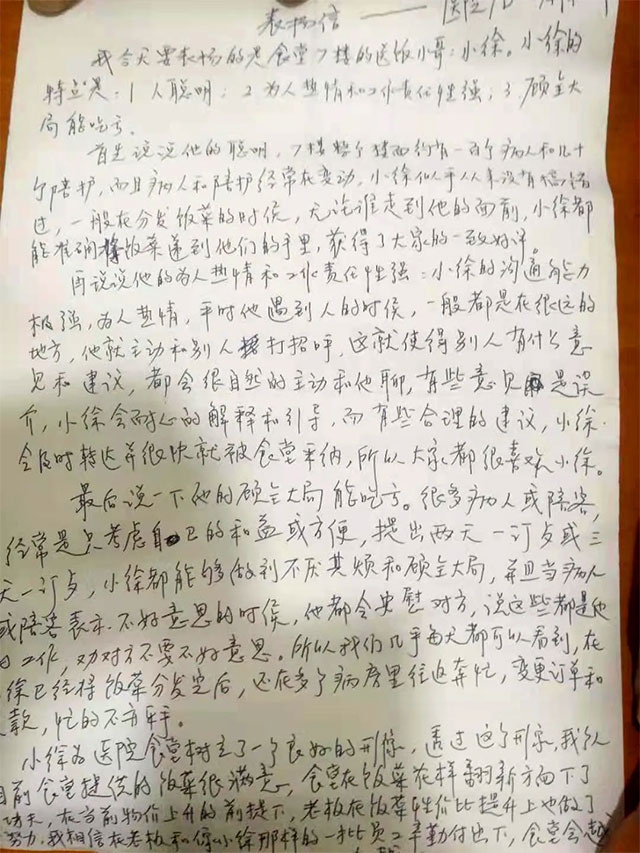 表扬信 —— 医院
我今天要表扬的是食堂7楼的送饭小哥：小徐。小徐的
特点是：1 人聪明；2 为人热情和工作责任性强；3 顾全大
局能吃亏。
首先说说他的聪明，7楼整个楼面约有一百个病人和几十
个陪护，而且病人和陪护经常在变动，小徐似乎从来没有搞错
过，一般在分发饭菜的时侯，无论谁走到他的面前，小徐都
能准确将饭菜递到他们的手里，获得了大家的一致好评。
再说说他的为人热情和工作责任性强：小徐的沟通能力
极强，为人热情，平时他遇到人的时侯，一般都是在很远的
地方，他就主动和别人打招呼，这就使得别人有什么意
见和建议，都会很自然的主动和他聊，有些意见是误
介，小徐会耐心的解释和引导，而有些合理的建议，小徐
会及时转达并很快就被食堂采纳，所以大家都很喜欢小徐。
最后说一下他的顾全大局能吃亏。很多病人或陪客，
经常是只考虑自已的利益或方便，提出两天一订或三
天一订，小徐都能够做到不厌其烦和顾全大局，并且当病人
或陪客表示不好意思的时侯，他都会安慰对方，说这些都是他
工作，劝对方不要不好意思。所以我们几乎每天都可以看到，在
徐已经将饭菜分发完后，还在多个病房里往返奔忙，变更订单和
款，忙的不亦乎。
小徐为医院食堂树立了一个良好的形像，透过这个形象，我们
目前食堂提供的饭菜很满意，食堂在饭菜花样翻新方面下了
功夫，在当前物价上升的前提下，老板在饭菜性价比提升上也做了
努力。我相信在老板和像小徐那样的一批员工辛勤付出下，食堂会越